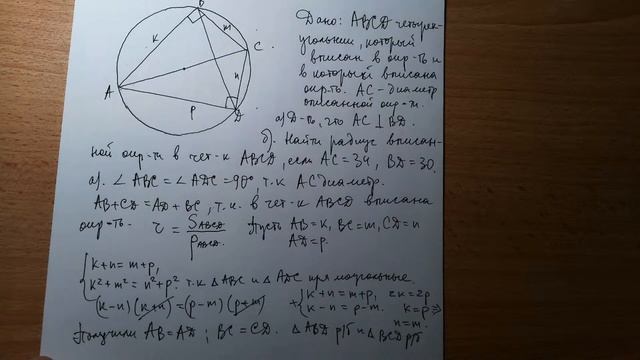 B
к
m
C
n
A
p
D
Дано: ABCD четырех-
угольник, который
вписан в окр-ть и
в который вписана
окр-ть. AC - диаметр
описанной окр-ти.
а) Д-ть, что AC ⊥ BD.
б). Найти радиус вписан-
ной окр-ти в чет-к ABCD, если AC = 34, BD = 30.
а). ∠ABC = ∠ADC = 90°, т.к AC диаметр.
AB + CD = AD + BC, т.к. в чет-к ABCD вписана
окр-ть. r = S ABCD / p ABCD. Пусть AB = k, BC = m, CD = n
AD = p.
{ k + n = m + p,
k² + m² = n² + p². т.к △ABC и △ADC прямоугольные.
(k - n)(k + n) = (p - m)(p + m) + { k + n = m + p, 2k = 2p
k - n = p - m. k = p ⇒
n = m.
Получили AB = AD; BC = CD. △ABD р/б и △BCD р/б